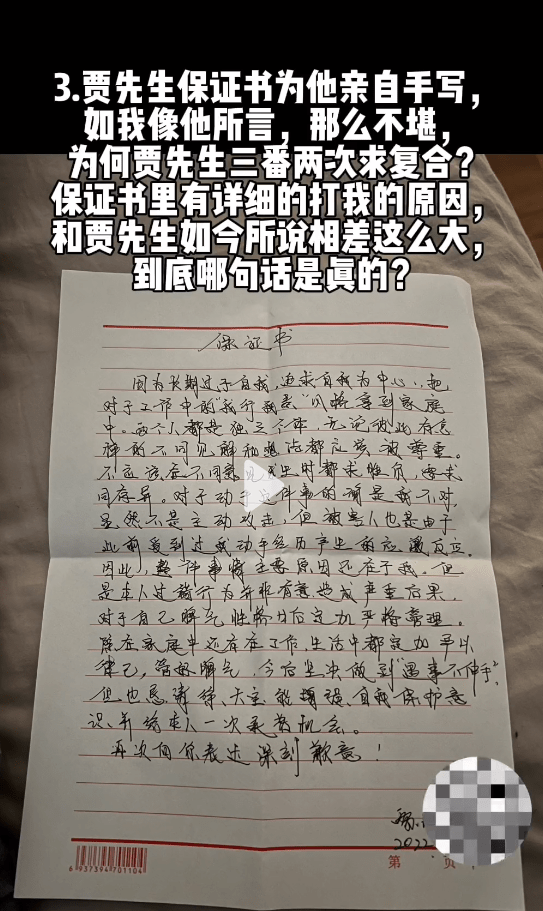 3.贾先生保证书为他亲自手写，
如我像他所言，那么不堪，
为何贾先生三番两次求复合？
保证书里有详细的打我的原因，
和贾先生如今所说相差这么大，
到底哪句话是真的？
保证书
因为长期过于自我，追求自我为中心，把
对于工作中的“我行我素”风格拿到家庭
中。两个人都是独立个体，无论彼此有怎
样的不同见解和想法都应该被尊重。
不应该在不同意见时都求胜负，要求
同存异。对于动手这件事的确是我不对，
虽然不是主动攻击，但被害人也是由于
此前受到过我动手经历产生的应激反应。
因此，整件事情主要原因还在于我。但
是本人过稿行为并非有意造成严重后果，
对于自己脾气性格今后定加严格管理。
除在家庭中还有在工作、生活中都定加严以
律己，管好脾气，今后坚决做到“遇事不伸手”。
但也恳请 大王能增强自我保护意
识，并给本人一次 机会。
再次向你表达深刻歉意！
2022
第 页
6 937394 701104